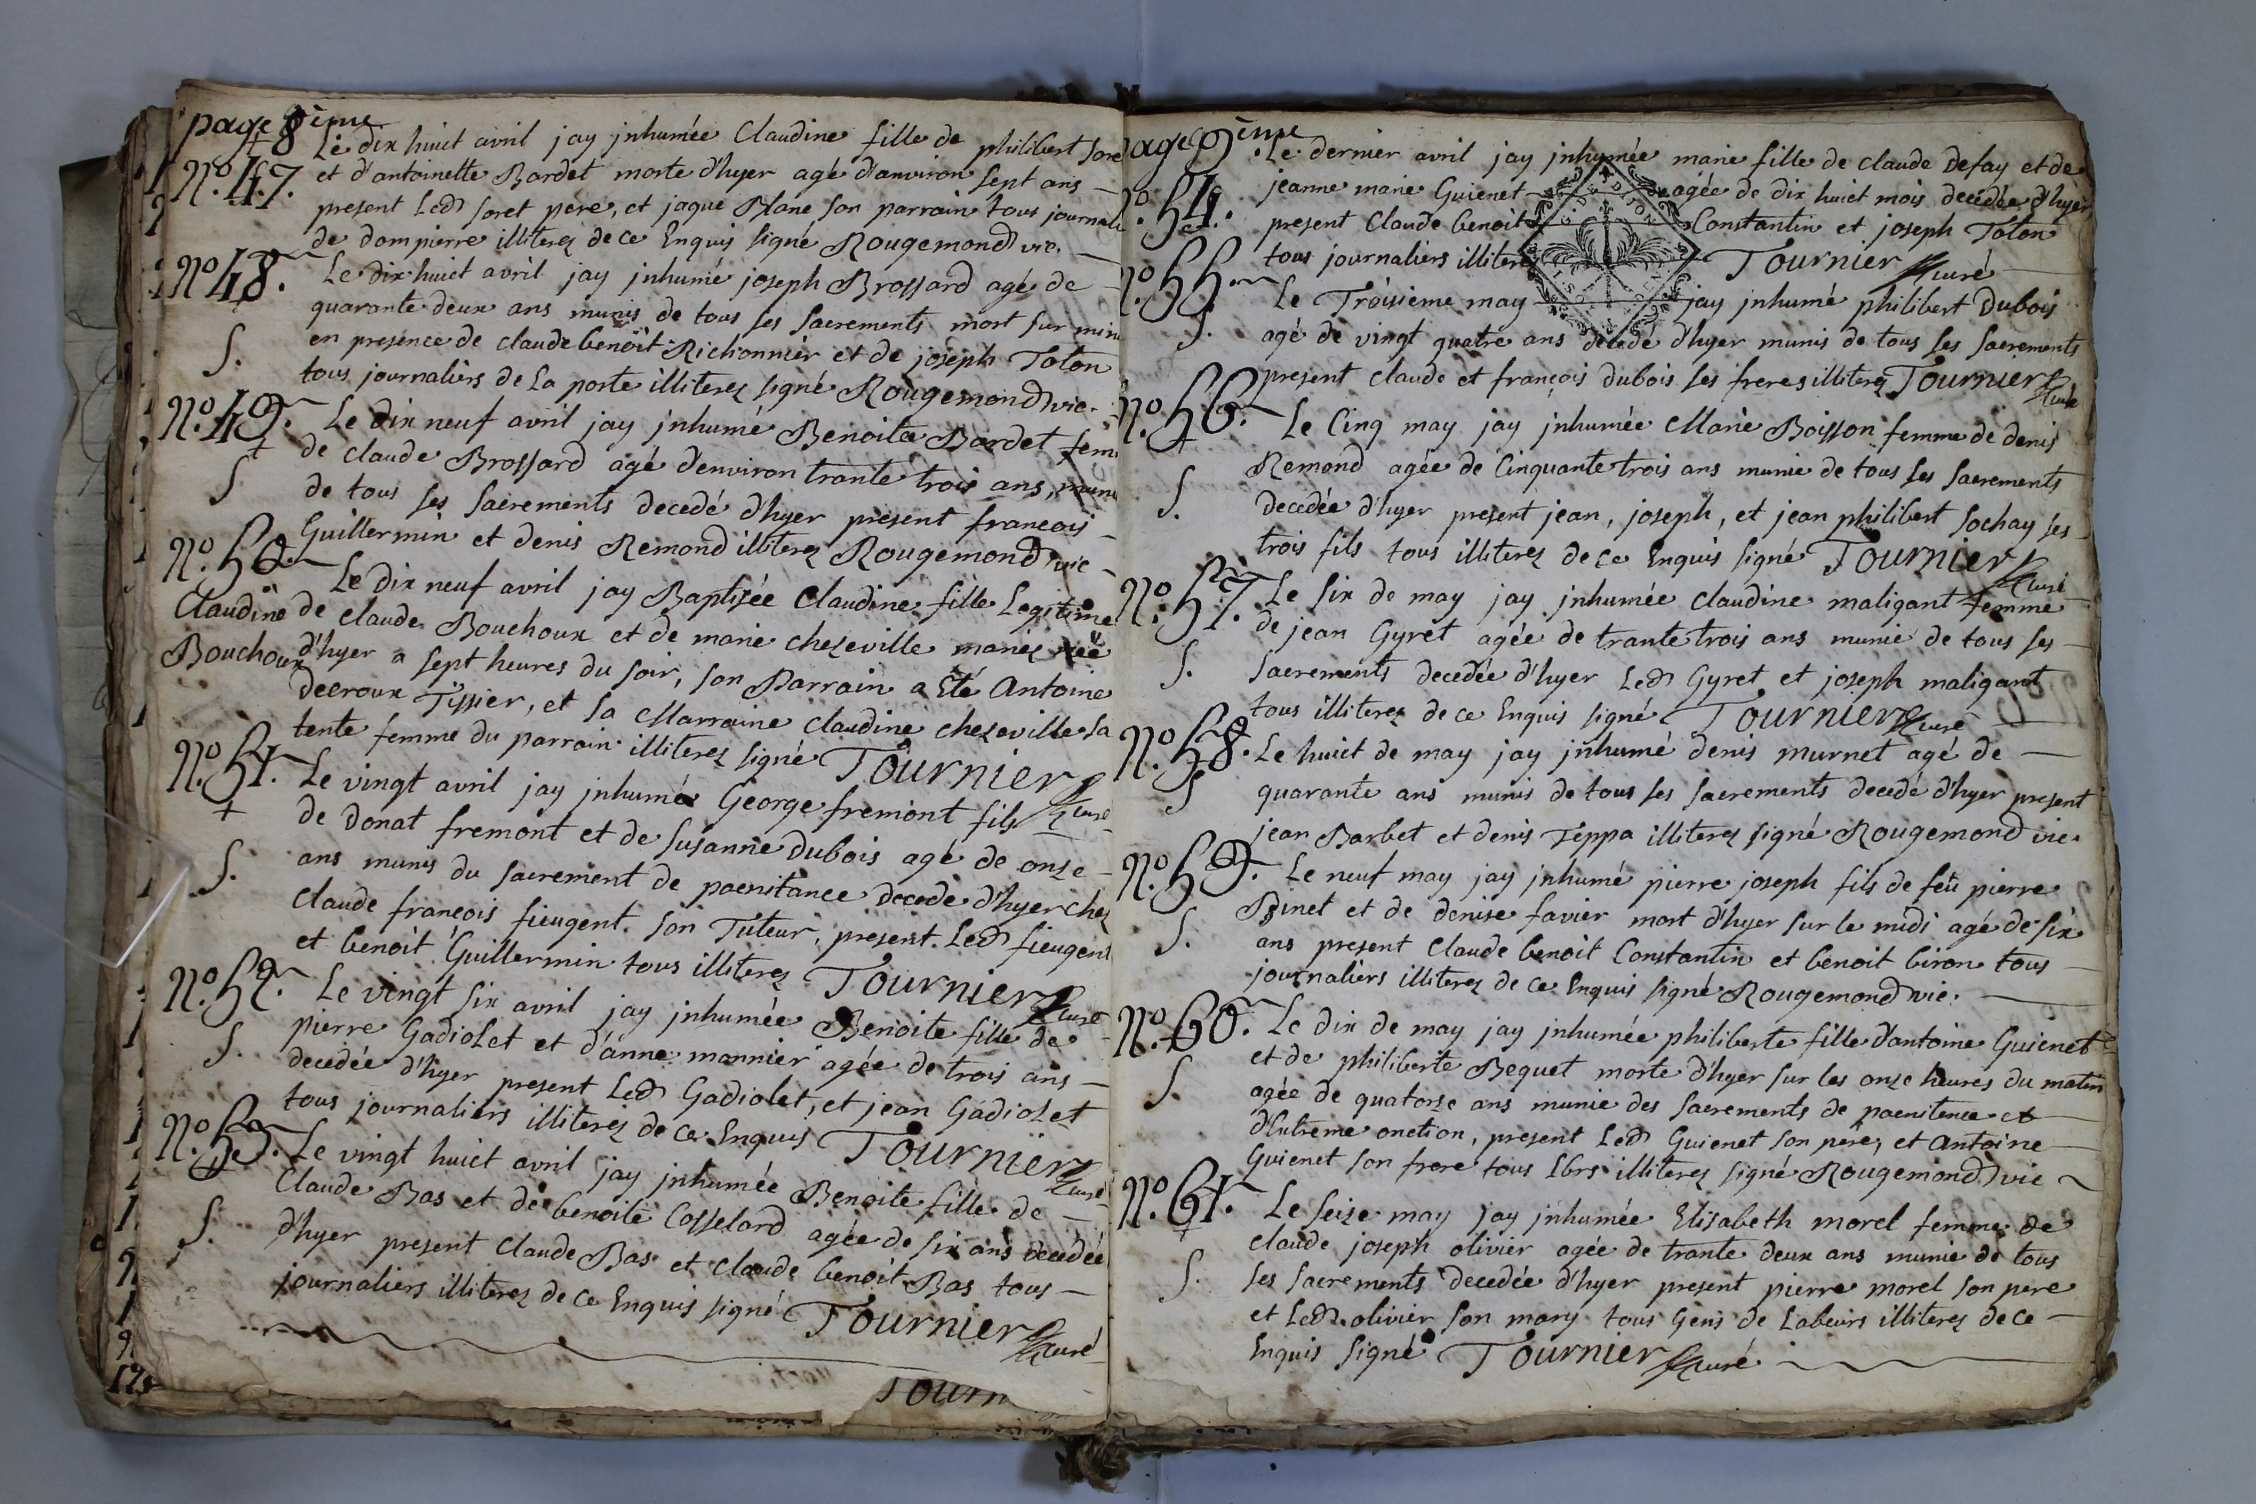 page 8ème
Le dix huict avril jay jnhumée Claudine fille de philibert Sore
N.o 47. et d'antoinette Bardet morte d'hyer agé d'anviron sept ans
present Led soret pere, et jaque Blanc son parrain tous journali
de dompierre illiterez de ce Enquis signé Rougemond vic.
N.o 48. Le dix huict avril jay jnhumé joseph Brossard agé de
quarante deux ans munis de tous ses sacrements mort sur minu
S. en presence de claude benoît Richonnier et de joseph Tolon
tous journaliers de La poste illiterez signé Rougemond vic.
N.o 49. Le dix neuf avril jay jnhumé Benoite Bardet fem
de claude Brossard agé d'environ trante trois ans, muni
S de tous ses sacrements decedé d'hyer present francois
Guillermin et denis Remond illiterez Rougemond vic
N.o 50. Le dix neuf avril jay Baptisée Claudine fille Legitime
Claudine de claude Bouchoux et de marie chezeville mariez née
Bouchoux d'hyer a sept heures du soir, son Parrain a Eté Antoine
decroux Tissier, et sa Marraine claudine chezeville sa
tente femme du parrain illiterez signé Tournier Curé
N.o 51. Le vingt avril jay jnhumé George fremont fils
+ de donat fremont et de susanne dubois agé de onze
S. ans munis du sacrement de paenitance decede d'hyer chez
claude françois fieugent son Tuteur, present Led fieugent
et benoit Guillermin tous illiterez Tournier Curé
N.o 52. Le vingt six avril jay jnhumée Benoite fille de
S. pierre Gadiolet et d'anne mannier agée de trois ans
decedée d'hyer present Led Gadiolet, et jean Gadiolet
tous journaliers illiterez de ce Enquis Tournier Curé
N.o 53. Le vingt huict avril jay jnhumée Benoite fille de
Claude Bas et de benoite Cosselard agée de six ans decedée
S. d'hyer present Claude Bas et claude benoit Bas tous
journaliers illiterez de ce Enquis signé Tournier Curé
Tourn
page 9ème
Le dernier avril jay jnhumée marie fille de claude Defay et de
N.o 54. jeanne marie Guienet agée de dix huict mois decedée d'hyer
present Claude benoit Constantin et joseph Tolon
tous journaliers illiterez Tournier Curé
N.o 55. Le Troisieme may jay jnhumé philibert Dubois
S. agé de vingt quatre ans decedé d'hyer munis de tous ses sacrements
present claude et françois dubois ses freres illiterez Tournier Curé
N.o 56. Le Cinq may jay jnhumée Marie Boisson femme de denis
Remond agée de Cinquante trois ans munie de tous ses sacrements
S. decedée d'hyer present jean, joseph, et jean philibert sochay ses
trois fils tous illiterez de ce Enquis signé Tournier Curé
N.o 57. Le six de may jay jnhumée claudine maligant femme
de jean Gyret agée de trante trois ans munie de tous ses
S. sacrements decedée d'hyer Led Gyret et joseph maligant
tous illiterez de ce Enquis signé Tournier Curé
N.o 58. Le huict de may jay jnhumé denis murnet agé de
S quarante ans munis de tous ses sacrements decedé d'hyer present
jean Barbet et denis Teppa illiterez signé Rougemond vic.
N.o 59. Le neuf may jay jnhumé pierre joseph fils de feu pierre
Binet et de denise favier mort d'hyer sur le midi agé de six
S. ans present Claude benoit Constantin et benoit biron tous
journaliers illiterez de ce Enquis signé Rougemond vic.
N.o 60. Le dix de may jay jnhumée philiberte fille d'antoine Guienet
et de philiberte Bequet morte d'hyer sur les onze heures du matin
S. agée de quatorze ans munie des sacrements de paenitence et
d'Extreme onction, present Led Guienet son pere, et Antoine
Guienet son frere tous Lbrs illiterez signé Rougemond vic
N.o 61. Le seize may jay jnhumée Elisabeth morel femme de
claude joseph olivier agée de trante deux ans munie de tous
S. ses sacrements decedée d'hyer present pierre morel son pere
et Led olivier son mary tous Gens de Labeurs illiterez de ce
Enquis signé Tournier Curé